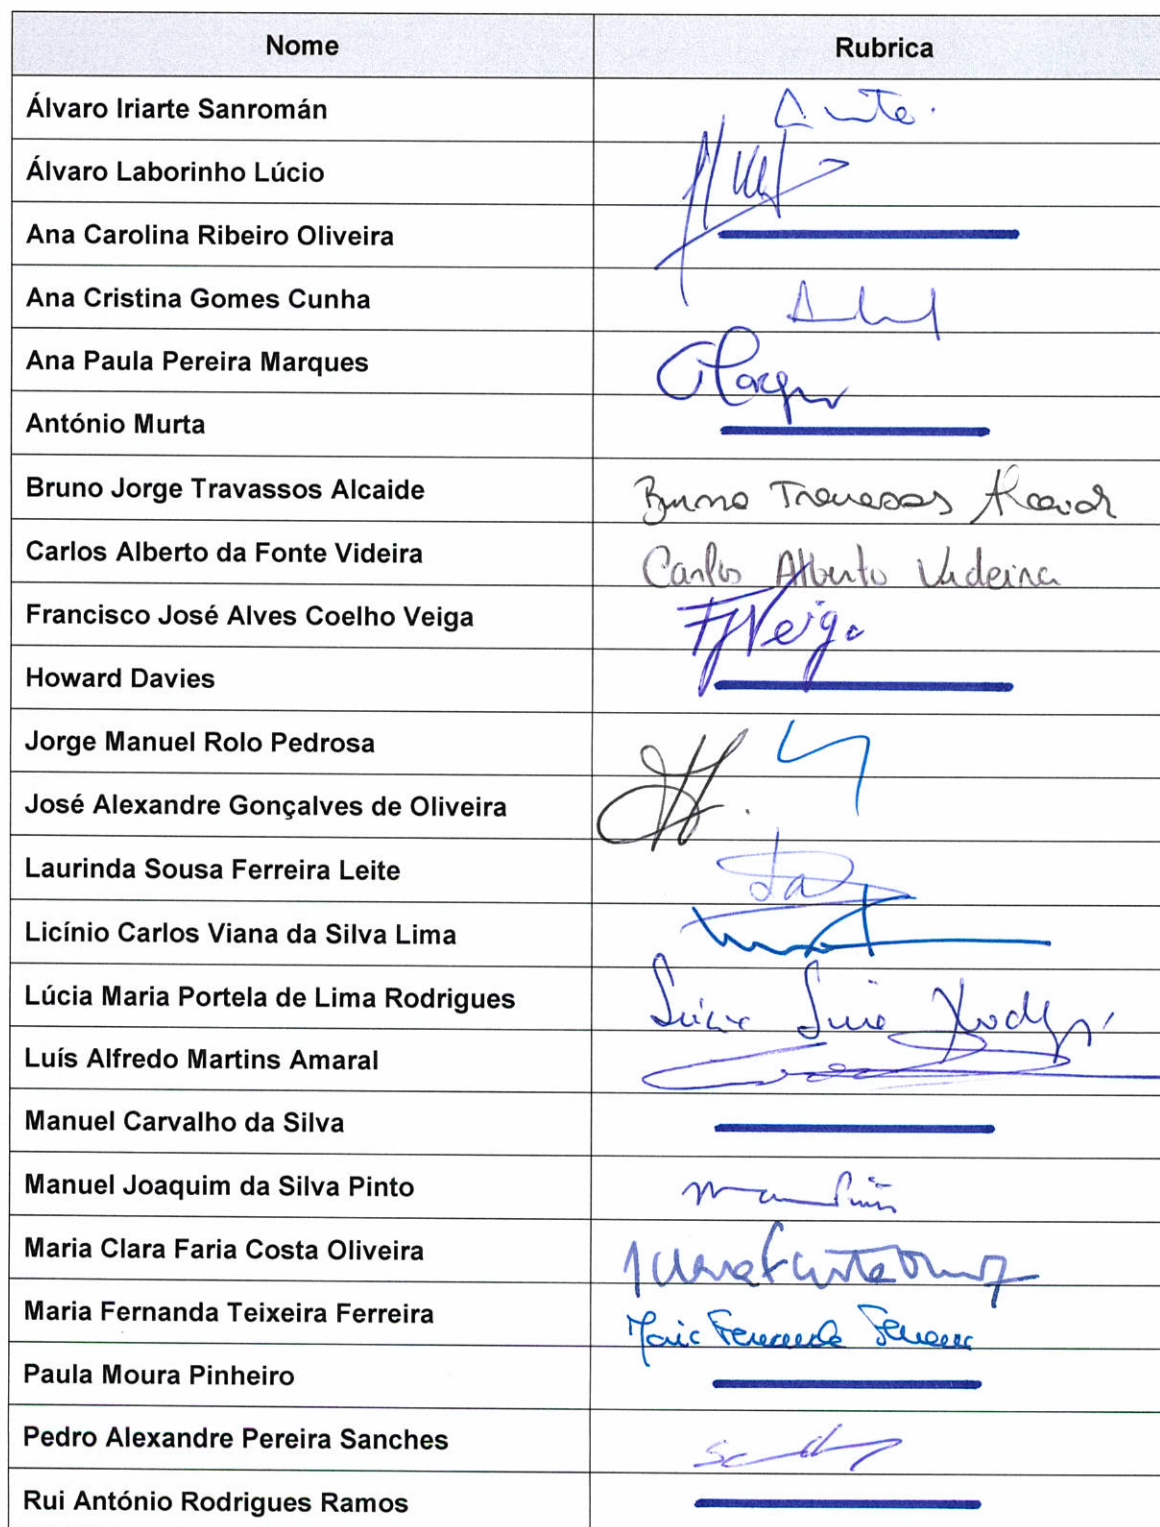 Nome Rubrica
Álvaro Iriarte Sanromán
Álvaro Laborinho Lúcio
Ana Carolina Ribeiro Oliveira
Ana Cristina Gomes Cunha
Ana Paula Pereira Marques
António Murta
Bruno Jorge Travassos Alcaide Bruno Travassos
Carlos Alberto da Fonte Videira Carlos Alberto Videira
Francisco José Alves Coelho Veiga FJVeiga
Howard Davies
Jorge Manuel Rolo Pedrosa
José Alexandre Gonçalves de Oliveira
Laurinda Sousa Ferreira Leite
Licínio Carlos Viana da Silva Lima
Lúcia Maria Portela de Lima Rodrigues Lúcia Lima Rodrigues
Luís Alfredo Martins Amaral
Manuel Carvalho da Silva
Manuel Joaquim da Silva Pinto
Maria Clara Faria Costa Oliveira
Maria Fernanda Teixeira Ferreira Maria Fernanda Ferreira
Paula Moura Pinheiro
Pedro Alexandre Pereira Sanches
Rui António Rodrigues Ramos